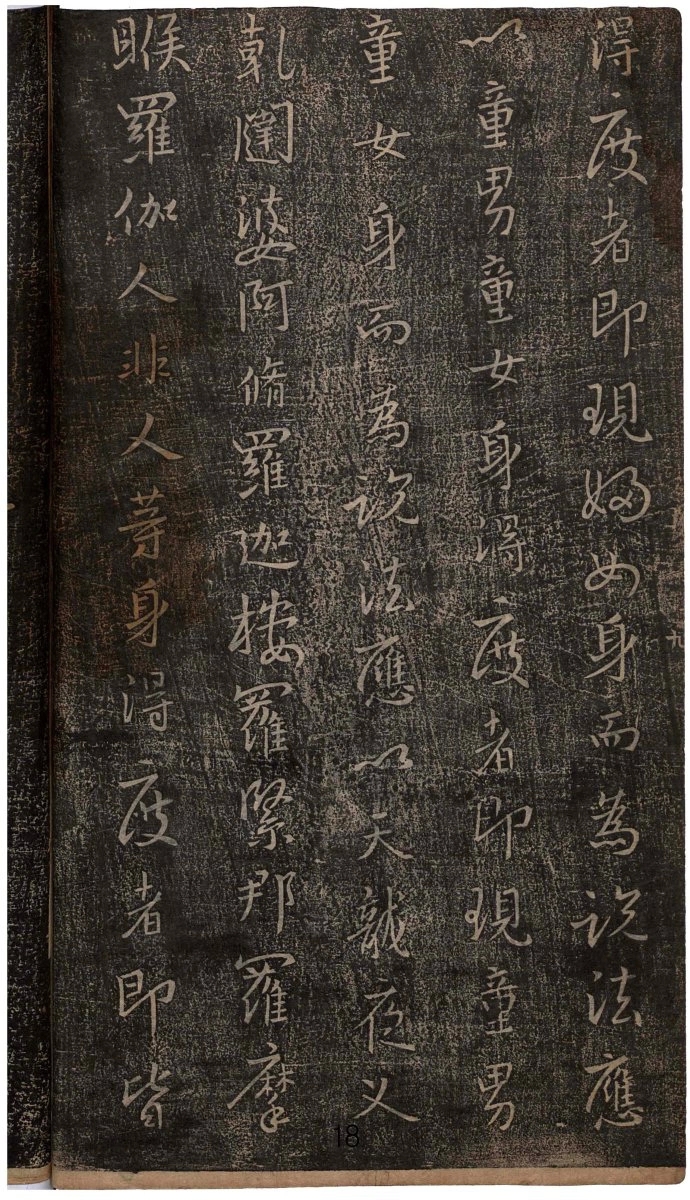 得度者即現婦女身而為說法應
以童男童女身得度者即現童男
童女身而為說法應以天龍夜叉
乾闥婆阿脩羅迦樓羅緊那羅摩
睺羅伽人非人等身得度者即皆
九
18